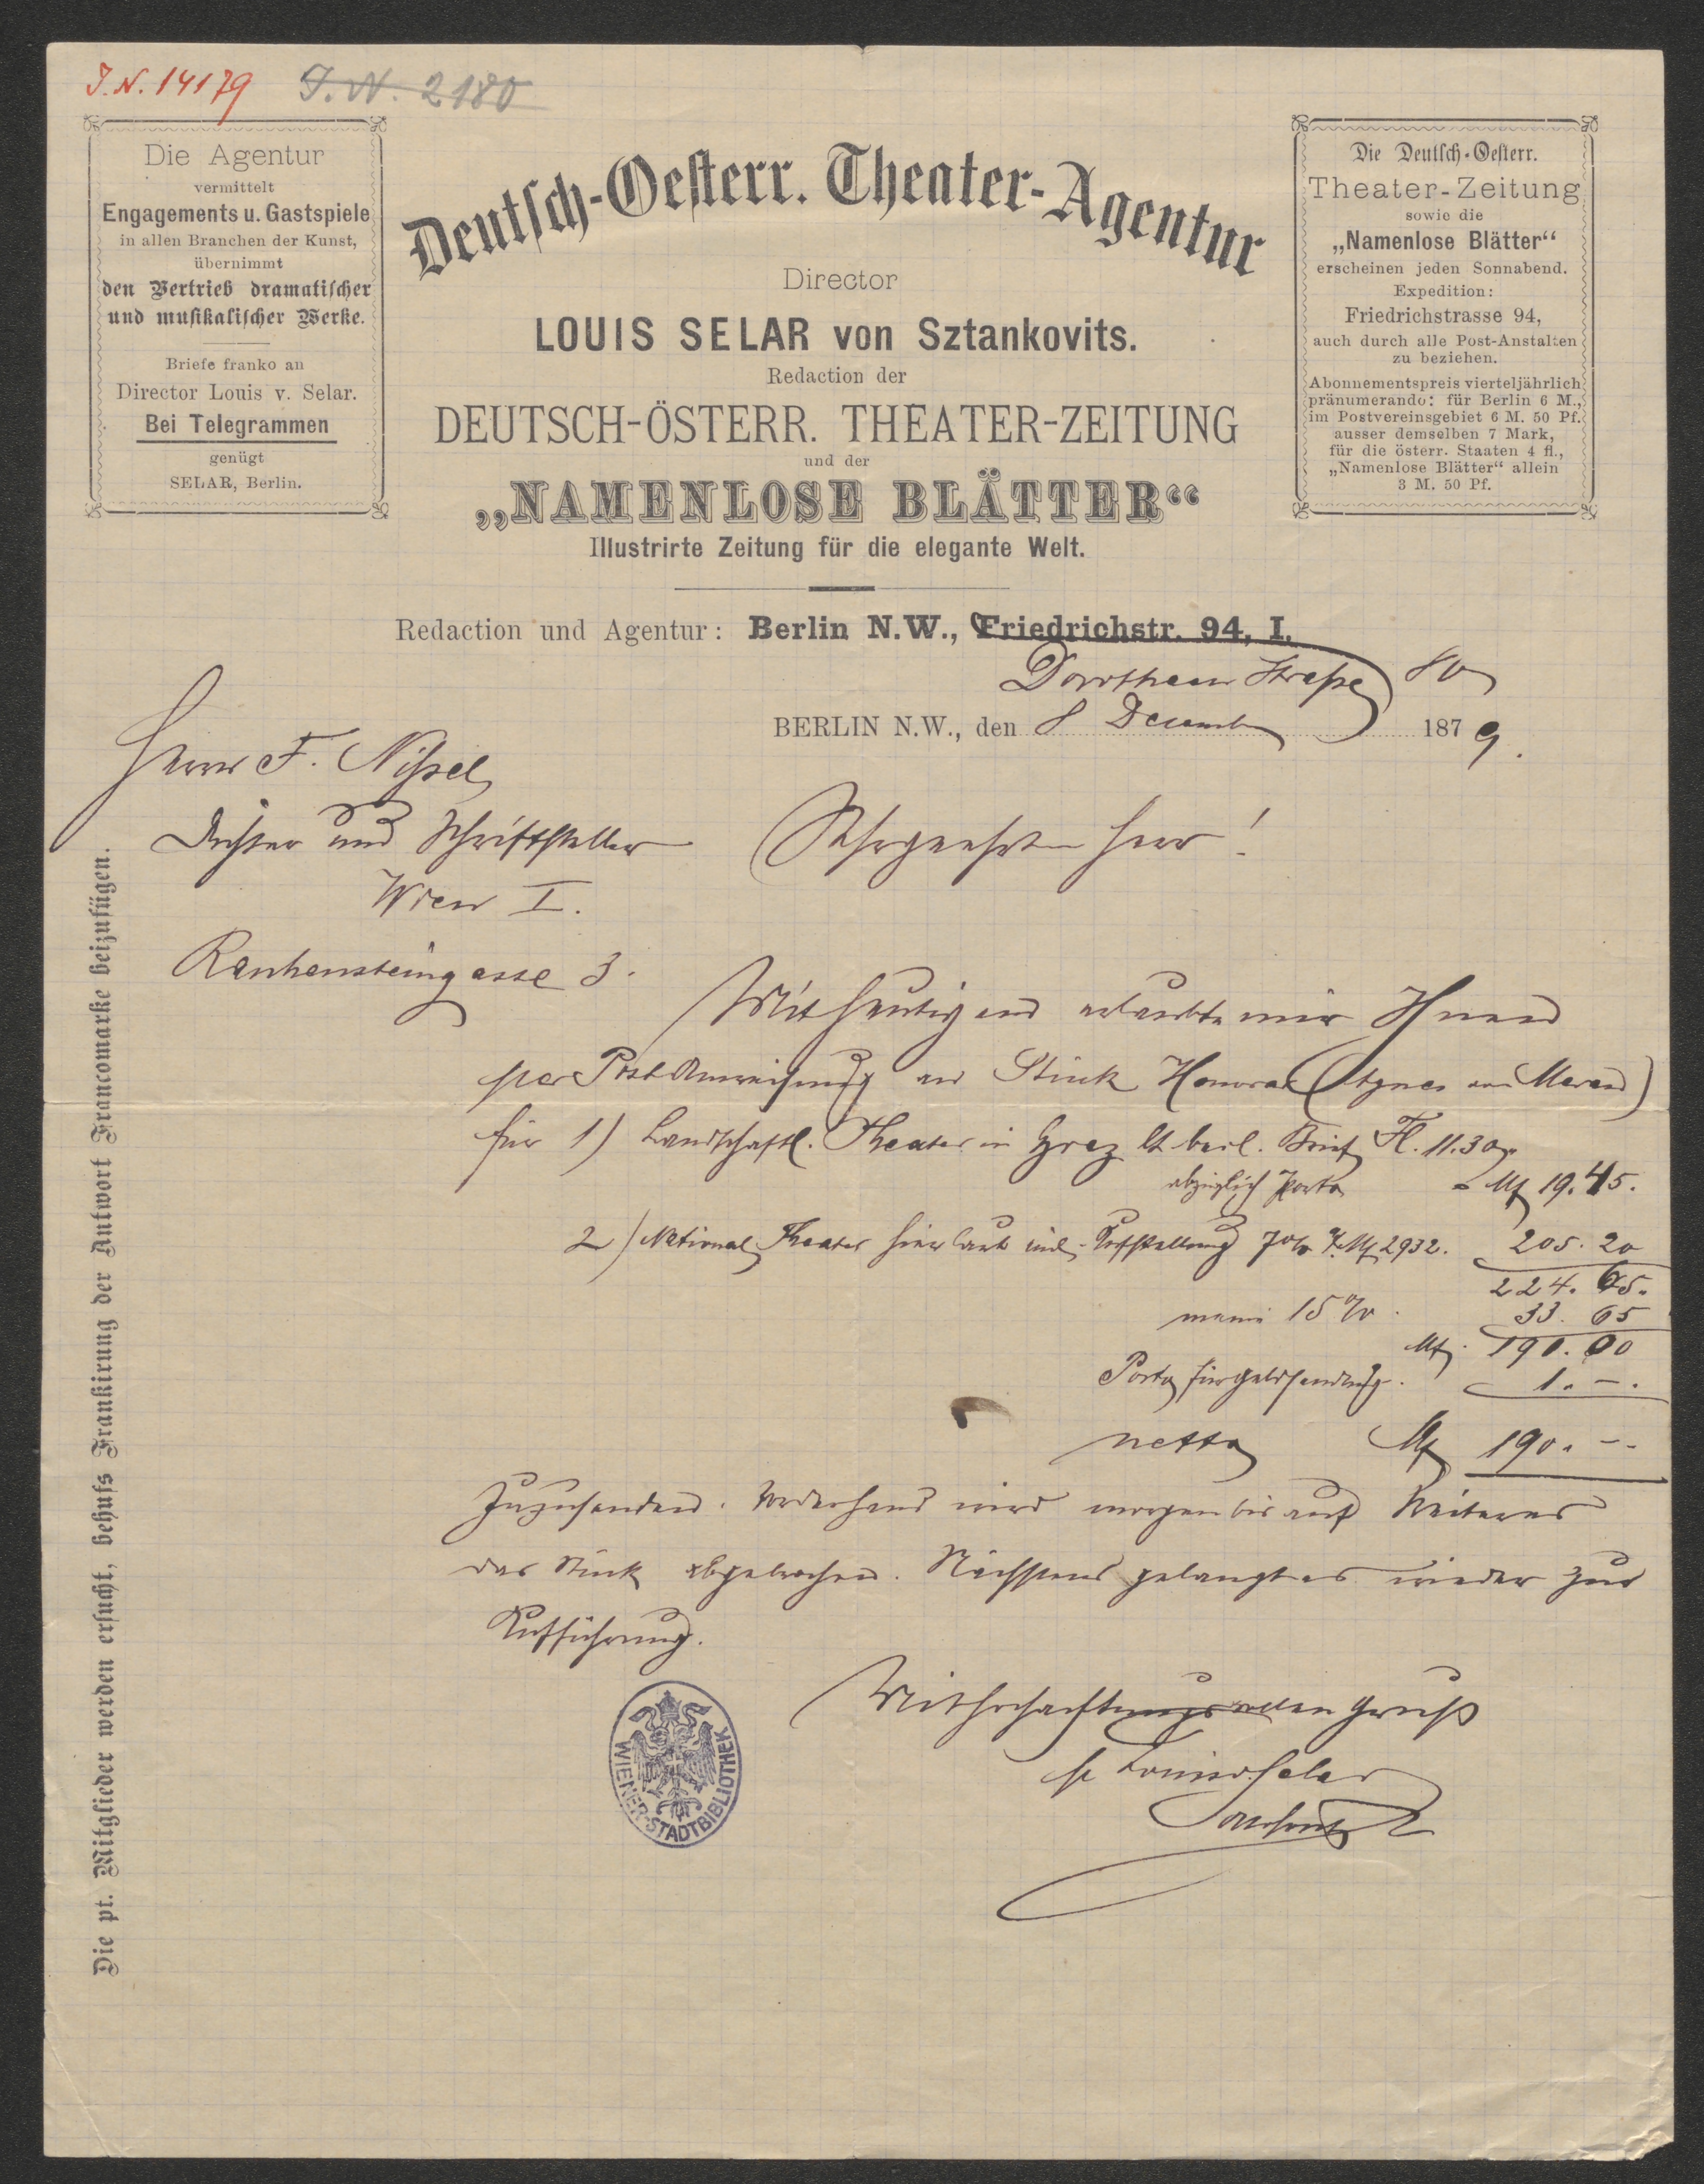 J.N. 14179 J.N. 2180
Die Agentur
vermittelt
Engagements u. Gastspiele
in allen Branchen der Kunst,
übernimmt
den Vertrieb dramatischer
und musikalischer Werke.
Briefe franko an
Director Louis v. Selar.
Bei Telegrammen
genügt
SELAR, Berlin.
Deutsch-Oesterr. Theater-Agentur
Director
LOUIS SELAR von Sztankovits.
Redaction der
DEUTSCH-ÖSTERR. THEATER-ZEITUNG
und der
„NAMENLOSE BLÄTTER“
Illustrirte Zeitung für die elegante Welt.
Die Deutsch-Oesterr.
Theater-Zeitung
sowie die
„Namenlose Blätter“
erscheinen jeden Sonnabend.
Expedition:
Friedrichstrasse 94,
auch durch alle Post-Anstalten
zu beziehen.
Abonnementspreis vierteljährlich
pränumerando: für Berlin 6 M.,
im Postvereinsgebiet 6 M. 50 Pf.
ausser demselben 7 Mark,
für die österr. Staaten 4 fl.,
„Namenlose Blätter“ allein
3 M. 50 Pf.
Redaction und Agentur: Berlin N.W., Friedrichstr. 94, I.
Dorotheen Straße 80
BERLIN N.W., den 8 Decemb 1879.
Herrn F. Nissel
Dichter und Schriftsteller
Wien I.
Rauhensteingasse 3.
Sehrgeehrter Herr!
Mit heutigem erlaubte mir Ihnen
per Post Anweisung an Stück Honorar (Agnes von Meran)
für 1) Landschaftl. Theater in Graz lt beil. Brief Fl. 11.30
abzüglich Porto = Mk 19.45.
2) National Theater hier laut Aufstellung 7% v. Mk 2932. 205.20
224.65.
minus 15% 33.65
Mk. 191.00
Porto für Geldsendung. 1.-.
netto Mk 190.--
zuzusenden. Vorderhand wird morgen bis auf Weiteres
das Stück abgebrochen. Nächstens gelangt es wieder zur
Aufführung.
Mit hochachtungsvollen Gruß
p Louis v. Selar
WIENER-STADTBIBLIOTHEK
Die pt. Mitglieder werden ersucht, behufs Frankirung der Antwort Francomarke beizufügen.